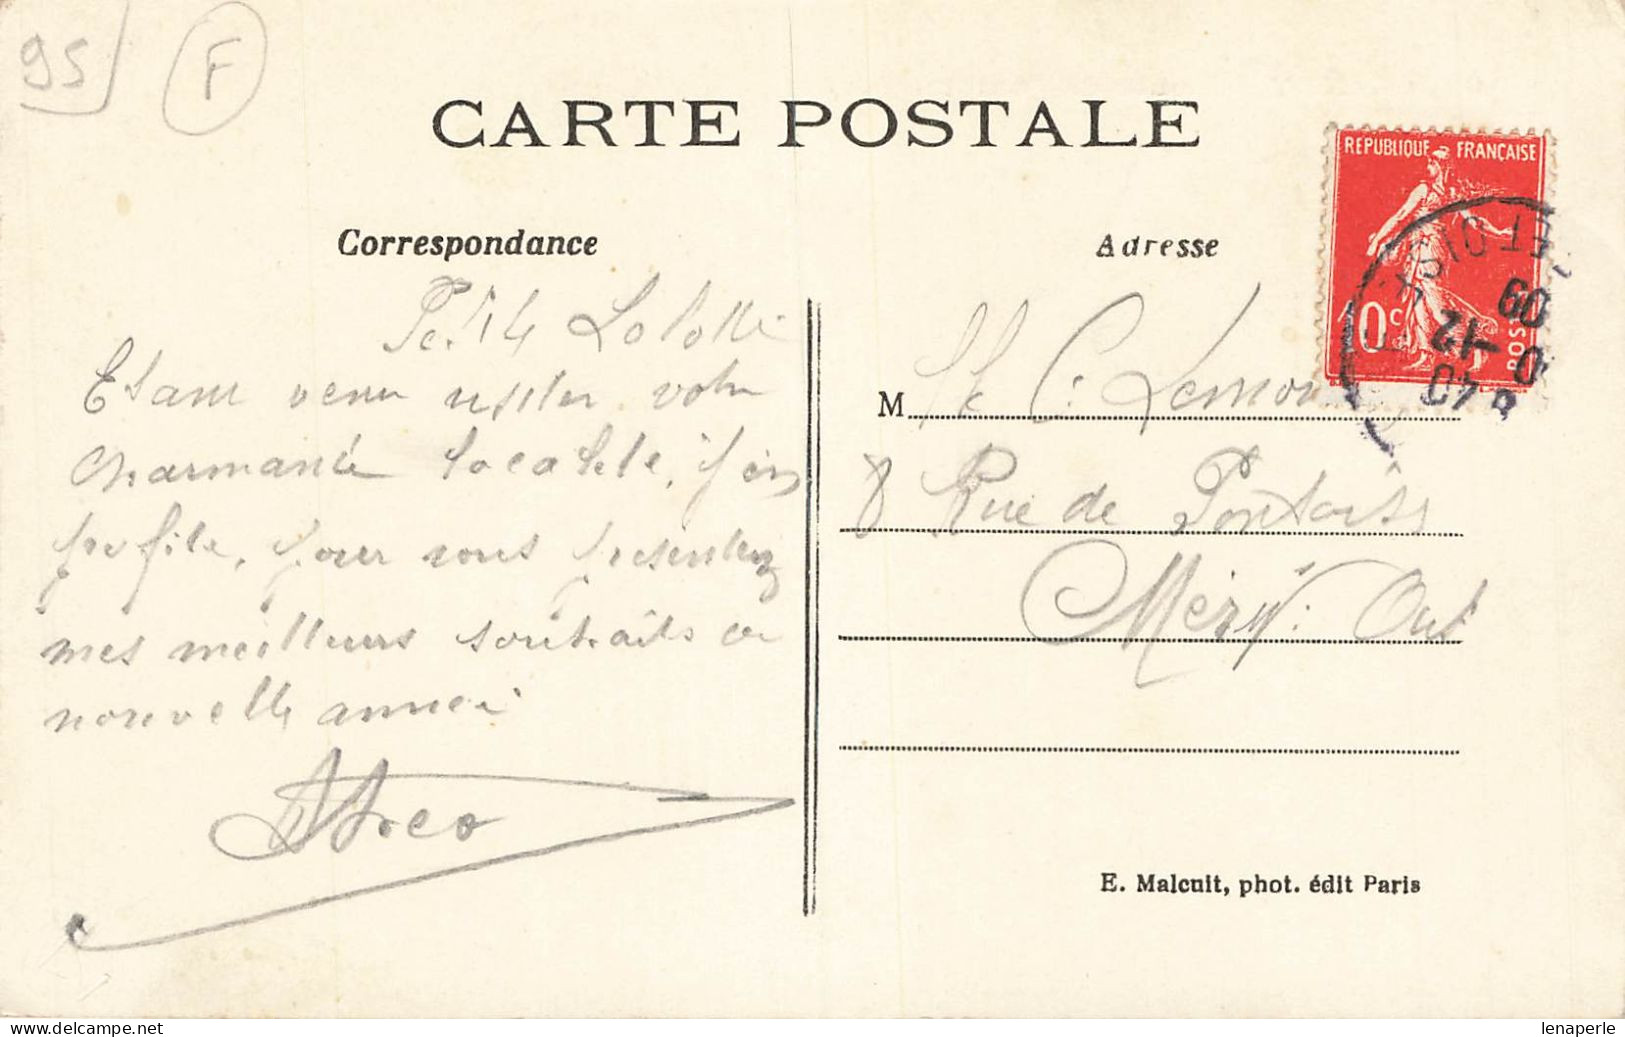 95 F
CARTE POSTALE
REPUBLIQUE FRANÇAISE
10c POSTES
ET OISE
8 40
-12
09
Correspondance
Adresse
Lolotte
Etant venu visiter votre
charmante localité, j'en
profite, pour vous présenter
mes meilleurs souhaits de
nouvelle année
M C. Lemoi
8 Rue de Pontoise
Méru. Oise
E. Malcuit, phot. édit Paris
www.delcampe.net
lenaperle